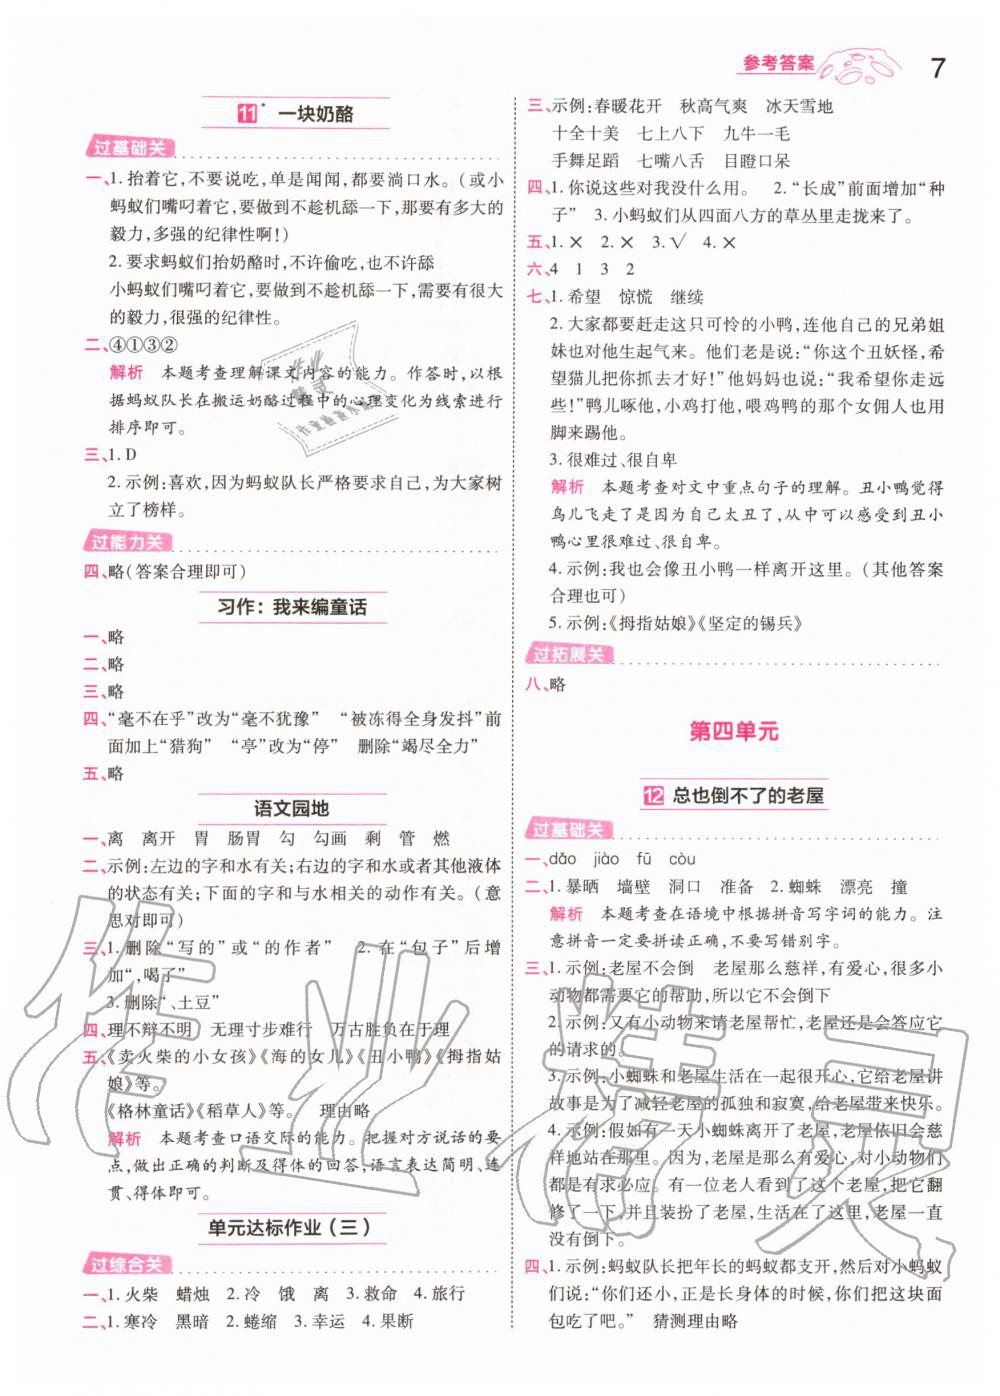 参考答案
7
11* 一块奶酪
过基础关
一、1. 抬着它,不要说吃,单是闻闻,都要淌口水。(或小
蚂蚁们嘴叼着它,要做到不趁机舔一下,那要有多大的
毅力,多强的纪律性啊!)
2. 要求蚂蚁们抬奶酪时,不许偷吃,也不许舔
小蚂蚁们嘴叼着它,要做到不趁机舔一下,需要有很大
的毅力,很强的纪律性。
二、④①③②
解析 本题考查理解课文内容的能力。作答时,以根
据蚂蚁队长在搬运奶酪过程中的心理变化为线索进行
排序即可。
三、1. D
2. 示例:喜欢,因为蚂蚁队长严格要求自己,为大家树
立了榜样。
过能力关
四、略(答案合理即可)
习作:我来编童话
一、略
二、略
三、略
四、“毫不在乎”改为“毫不犹豫” “被冻得全身发抖”前
面加上“猎狗” “亭”改为“停” 删除“竭尽全力”
五、略
语文园地
一、离 离开 胃 肠胃 勾 勾画 剩 管 燃
二、示例:左边的字和水有关;右边的字和水或者其他液体
的状态有关;下面的字和与水相关的动作有关。(意
思对即可)
三、1. 删除“写的”或“的作者” 2. 在“包子”后增
加“,喝了”
3. 删除“、土豆”
四、理不辩不明 无理寸步难行 万古胜负在于理
五、《卖火柴的小女孩》《海的女儿》《丑小鸭》《拇指姑
娘》等。
《格林童话》《稻草人》等。 理由略
解析 本题考查口语交际的能力。把握对方说话的要
点,做出正确的判断及得体的回答,语言表达简明、连
贯、得体即可。
单元达标作业(三)
过综合关
一、1. 火柴 蜡烛 2. 冷 饿 离 3. 救命 4. 旅行
二、1. 寒冷 黑暗 2. 蜷缩 3. 幸运 4. 果断
三、示例:春暖花开 秋高气爽 冰天雪地
十全十美 七上八下 九牛一毛
手舞足蹈 七嘴八舌 目瞪口呆
四、1. 你说这些对我没什么用。 2. “长成”前面增加“种
子” 3. 小蚂蚁们从四面八方的草丛里走拢来了。
五、1. × 2. × 3. √ 4. ×
六、4 1 3 2
七、1. 希望 惊慌 继续
2. 大家都要赶走这只可怜的小鸭,连他自己的兄弟姐
妹也对他生起气来。他们老是说:“你这个丑妖怪,希
望猫儿把你抓去才好!”他妈妈说:“我希望你走远
些!”鸭儿啄他,小鸡打他,喂鸡鸭的那个女佣人也用
脚来踢他。
3. 很难过、很自卑
解析 本题考查对文中重点句子的理解。丑小鸭觉得
鸟儿飞走了是因为自己太丑了,从中可以感受到丑小
鸭心里很难过、很自卑。
4. 示例:我也会像丑小鸭一样离开这里。(其他答案
合理也可)
5. 示例:《拇指姑娘》《坚定的锡兵》
过拓展关
八、略
第四单元
12 总也倒不了的老屋
过基础关
一、dǎo jiào fū còu
二、1. 暴晒 墙壁 洞口 准备 2. 蜘蛛 漂亮 撞
解析 本题考查在语境中根据拼音写字词的能力。注
意拼音一定要拼读正确,不要写错别字。
三、1. 示例:老屋不会倒 老屋那么慈祥,有爱心,很多小
动物都需要它的帮助,所以它不会倒下
2. 示例:又有小动物来请老屋帮忙,老屋还是会答应它
的请求的。
3. 示例:小蜘蛛和老屋生活在一起很开心,它给老屋讲
故事是为了减轻老屋的孤独和寂寞,给老屋带来快乐。
4. 示例:假如有一天小蜘蛛离开了老屋,老屋依旧会慈
祥地站在那里。因为,老屋那么有爱心,对小动物们
都是有求必应。有一位老人看到了这个老屋,把它翻
修了一下,并且装扮了老屋,生活在了这里,老屋一直
没有倒下。
四、1. 示例:蚂蚁队长把年长的蚂蚁都支开,然后对小蚂蚁
们说:“你们还小,正是长身体的时候,你们把这块面
包吃了吧。” 猜测理由略
作业精灵